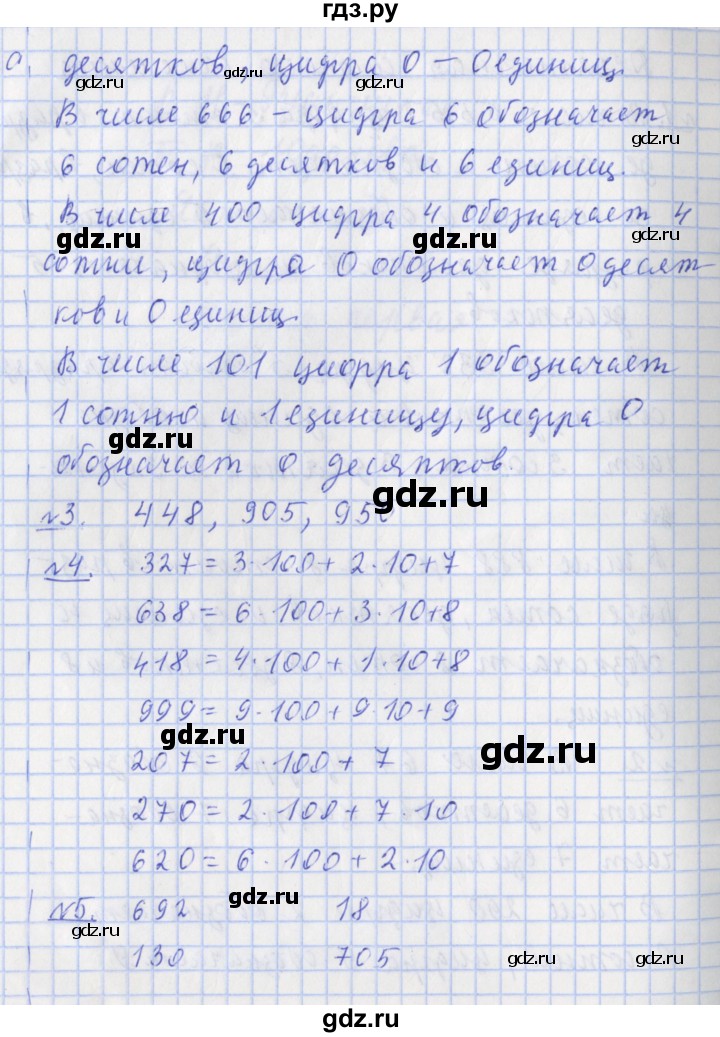 гдз.ру
0, десятков, цифра 0 – 0 единиц.
В числе 666 – цифра 6 обозначает
6 сотен, 6 десятков и 6 единиц.
В числе 400 цифра 4 обозначает 4
сотни, цифра 0 обозначает 0 десят-
ков и 0 единиц.
В числе 101 цифра 1 обозначает
1 сотню и 1 единицу, цифра 0
обозначает 0 десятков.
№3. 448, 905, 950
№4. 327 = 3·100 + 2·10 + 7
638 = 6·100 + 3·10 + 8
418 = 4·100 + 1·10 + 8
999 = 9·100 + 9·10 + 9
207 = 2·100 + 7
270 = 2·100 + 7·10
620 = 6·100 + 2·10
№5. 692 18
130 705
gdz.ru